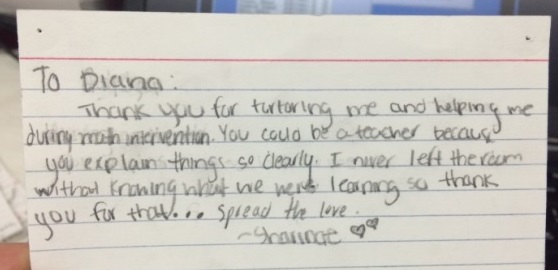 To Diana:
Thank you for turtoring me and helping me
during math intervention. You could be a teacher becaus
you explain things so clearly. I never left the room
without knowing what we were learning so thank
you for that... spread the love.